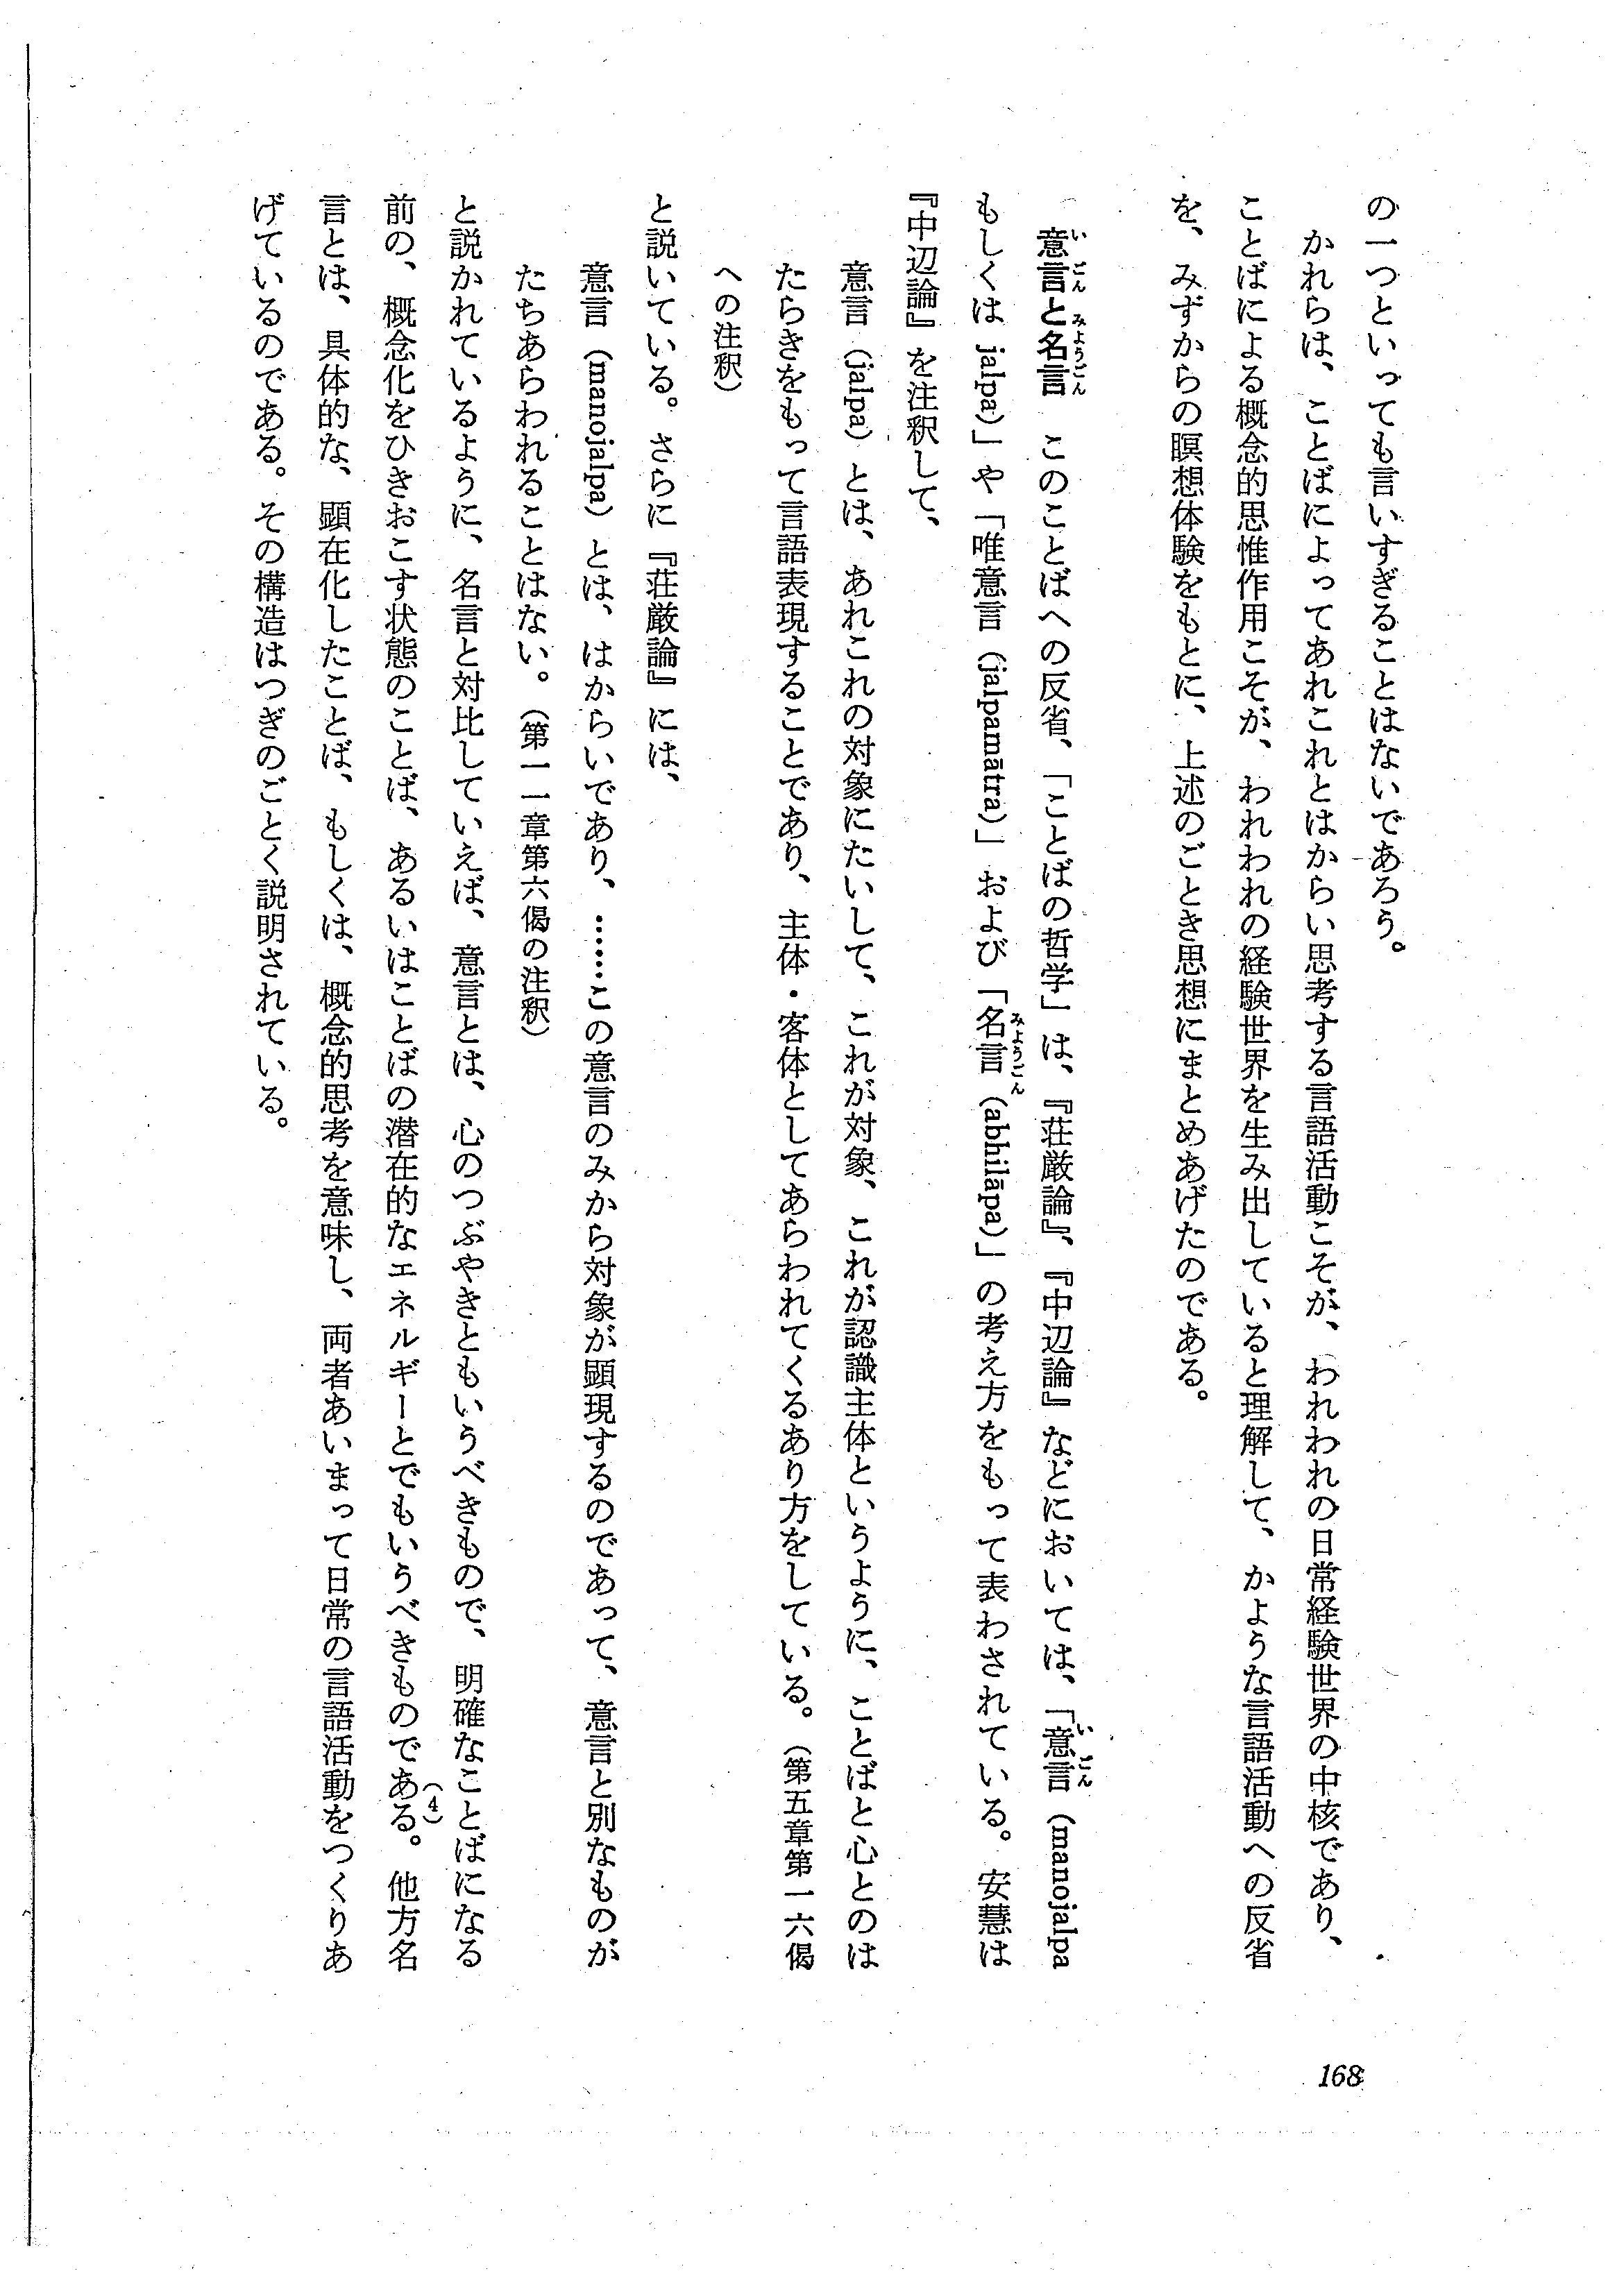 の一つといっても言いすぎることはないであろう。
かれらは、ことばによってあれこれとはからい思考する言語活動こそが、われわれの日常経験世界の中核であり、
ことばによる概念的思惟作用こそが、われわれの経験世界を生み出していると理解して、かような言語活動への反省
を、みずからの瞑想体験をもとに、上述のごとき思想にまとめあげたのである。
意言と名言　このことばへの反省、「ことばの哲学」は、『荘厳論』、『中辺論』などにおいては、「意言（manojalpa
いごん　みようごん
いごん
もしくは jalpa）」や「唯意言（jalpamātra）」および「名言（abhilāpa）」の考え方をもって表わされている。安慧は
みようごん
『中辺論』を注釈して、
意言（jalpa）とは、あれこれの対象にたいして、これが対象、これが認識主体というように、ことばと心とのは
たらきをもって言語表現することであり、主体・客体としてあらわれてくるあり方をしている。（第五章第一六偈
への注釈）
と説いている。さらに『荘厳論』には、
意言（manojalpa）とは、はからいであり、……この意言のみから対象が顕現するのであって、意言と別なものが
たちあらわれることはない。（第一一章第六偈の注釈）
と説かれているように、名言と対比していえば、意言とは、心のつぶやきともいうべきもので、明確なことばになる
前の、概念化をひきおこす状態のことば、あるいはことばの潜在的なエネルギーとでもいうべきものである。（4）他方名
言とは、具体的な、顕在化したことば、もしくは、概念的思考を意味し、両者あいまって日常の言語活動をつくりあ
げているのである。その構造はつぎのごとく説明されている。
168